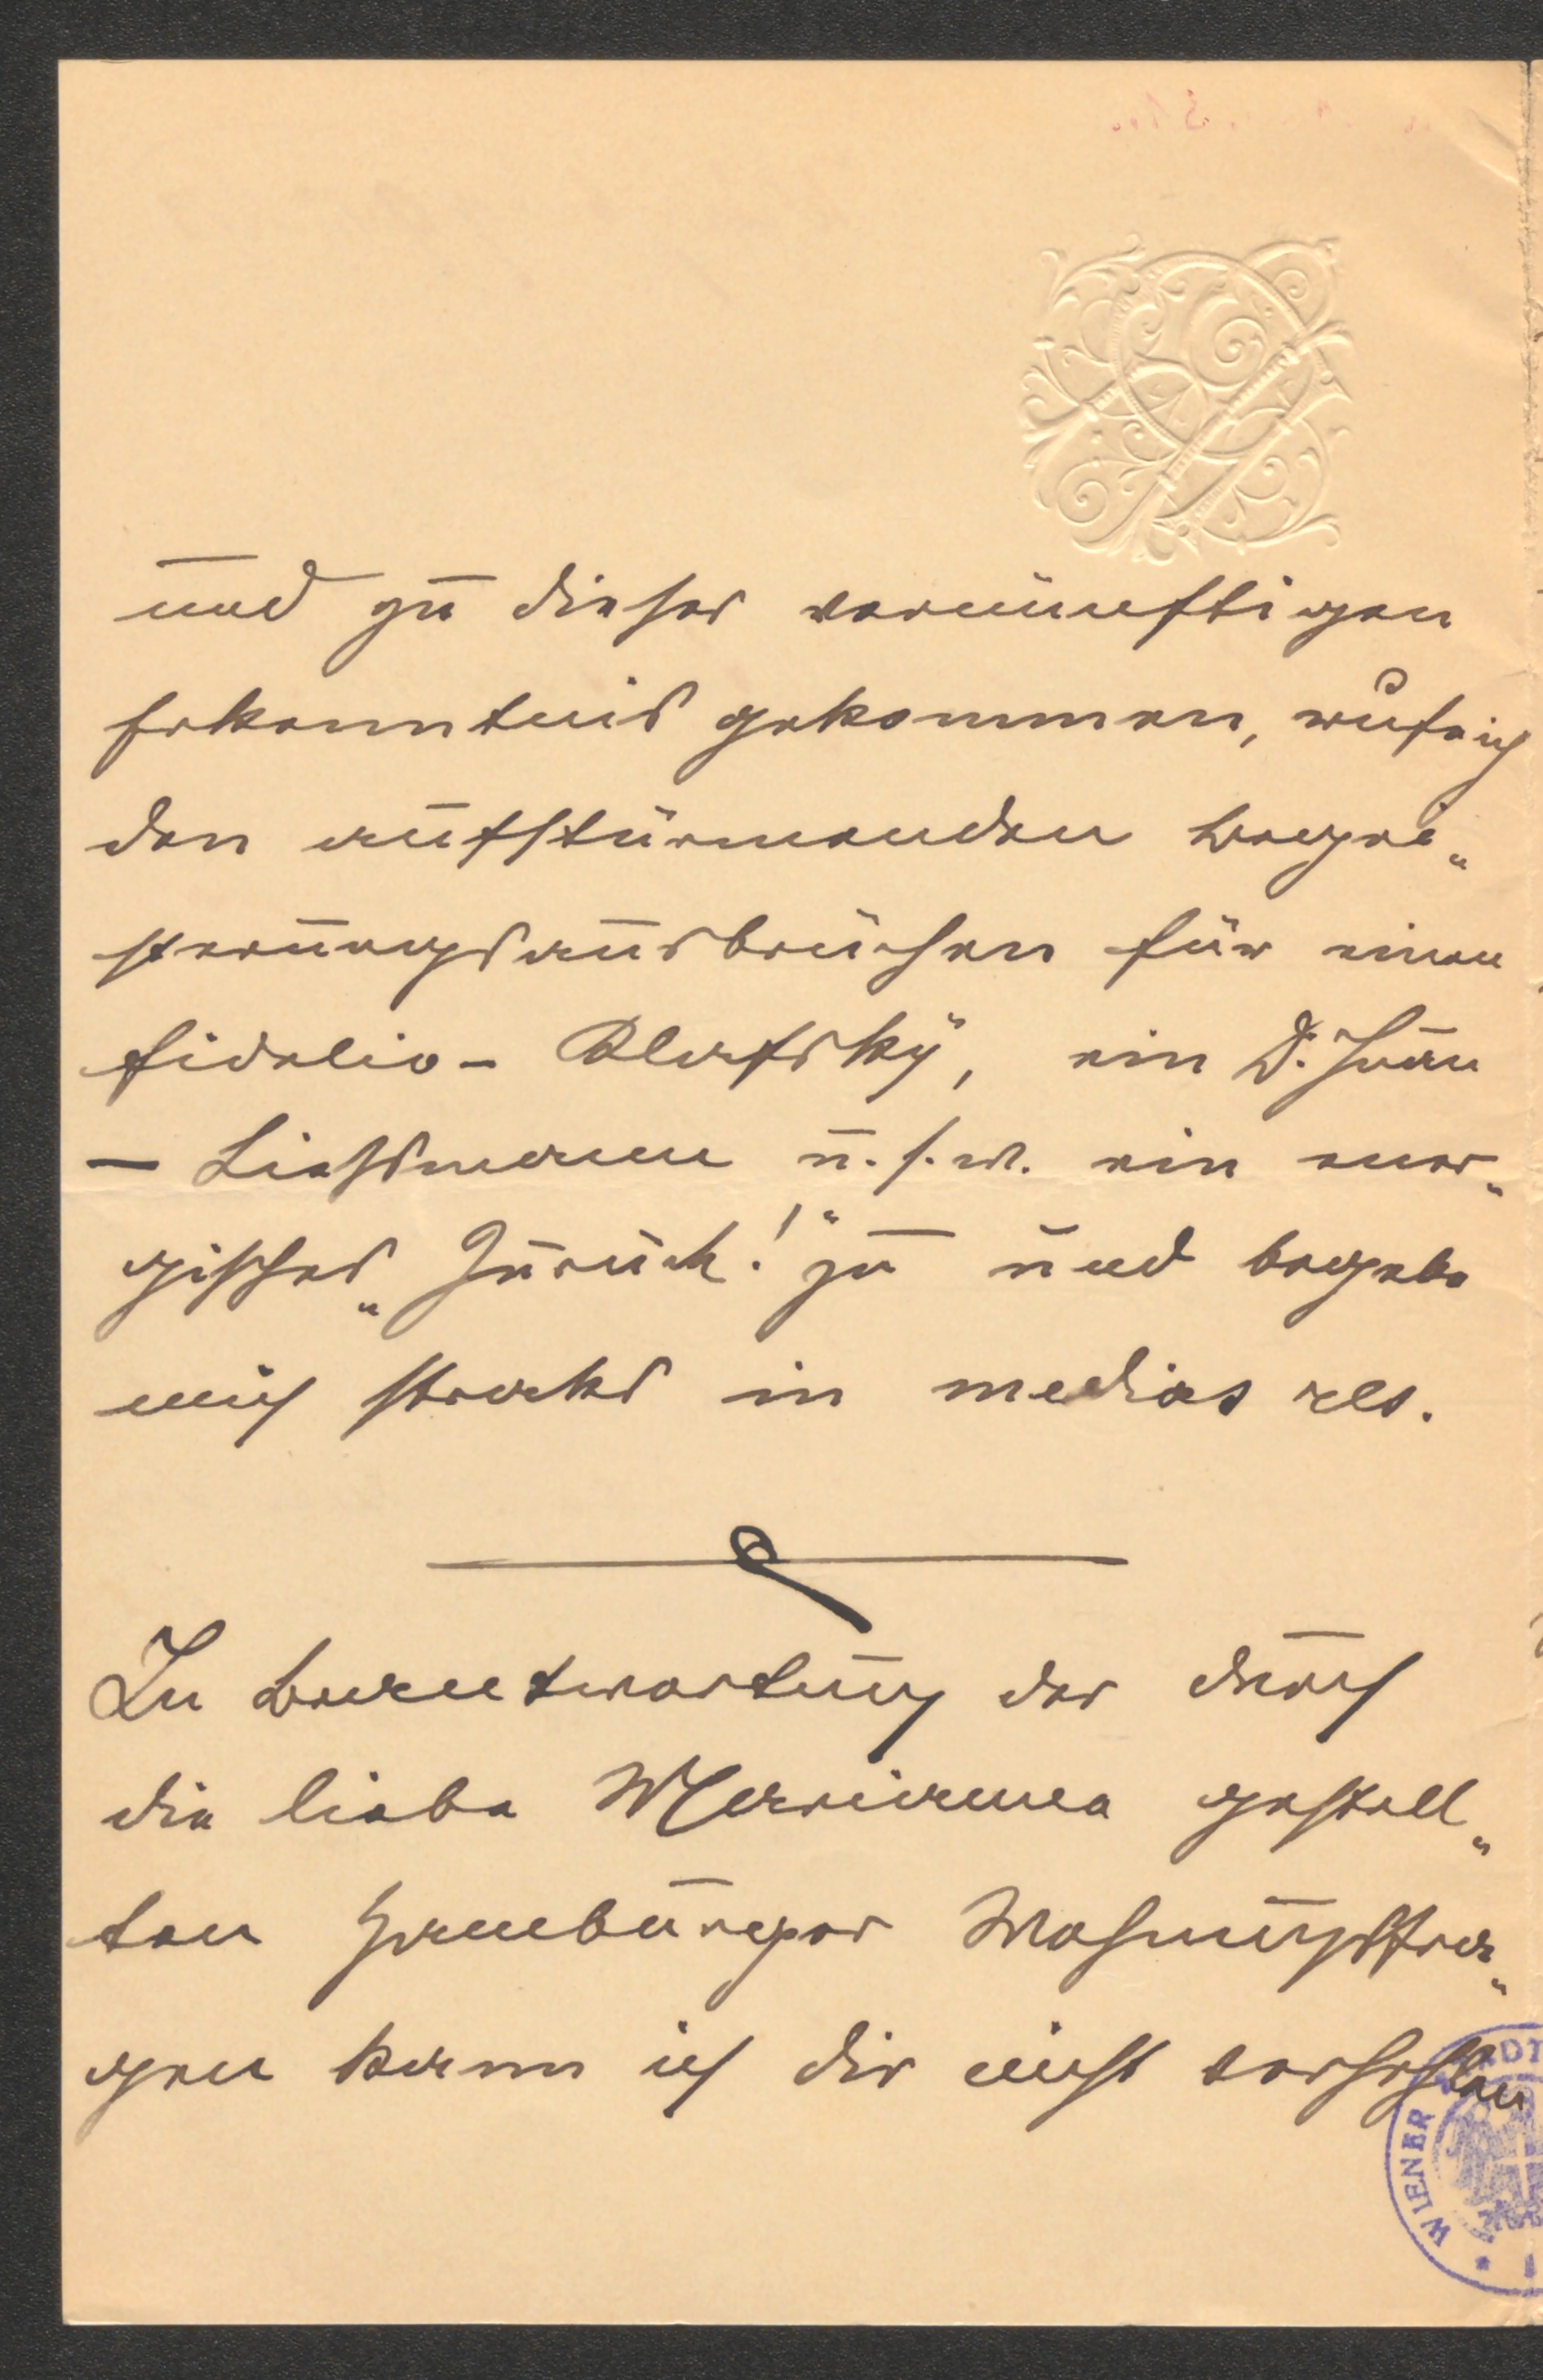 und zu dieser vernünftigen
Erkenntnis gekommen, rufe ich
den aufstürmenden Begei„
sterungsausbrüchen für einen
Fidelio - Klafsky, ein D. Juan
- Liessmann u. s. w. ein ener„
gisches „Zurück!“ zu und begebe
mich stracks in medias res.
In Beantwortung der durch
die liebe Marianne gestell„
ten Hamburger Wohnungsfra„
gen kann ich dir nicht verhehlen
WIENER STADT